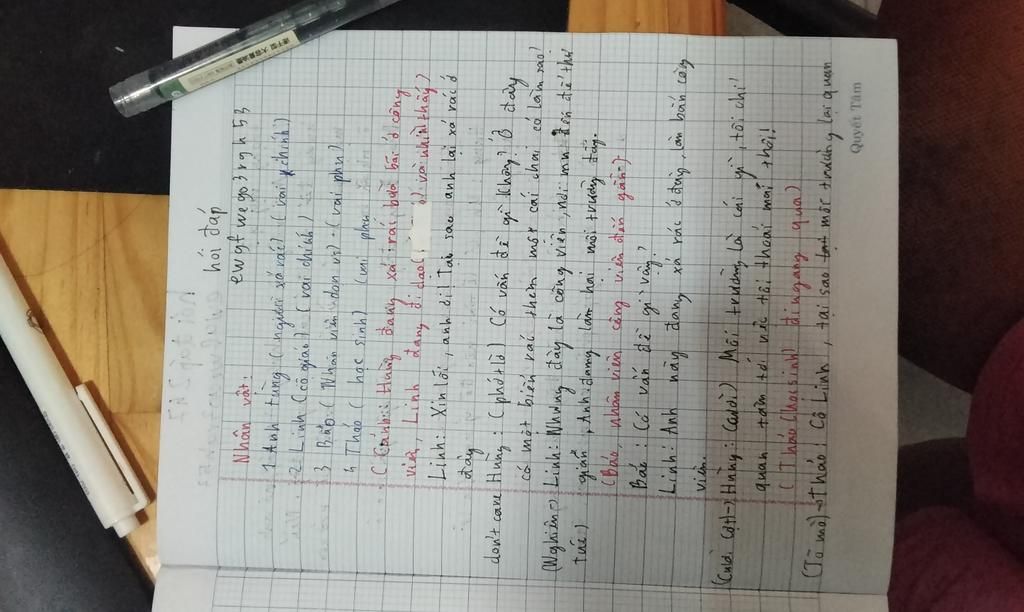 hỏi đáp
ewgf wego3rgh53
Nhân vật:
1 Anh Hùng (người xả rác) (vai chính)
2 Linh (cô giáo) (vai chính)
3 Bảo (Nhân viên dọn vs) (vai phụ)
4 Thảo (học sinh) (vai phụ)
(Cảnh: Hùng đang xả rác bừa bãi ở công
viên, Linh đang đi dạo và nhìn thấy)
Linh: Xin lỗi, anh ơi! Tại sao anh lại xả rác ở
đây
don't care Hùng: (phớt lờ) Có vấn đề gì không? Ở đây
có một biển rác thêm một cái chai có làm sao?
(Nghiêm Linh: Nhưng đây là công viên, nơi mn đến để thư
túc) giãn, Anh đang làm hại môi trường đấy.
(Bảo, nhân viên công viên đến gần)
Bảo: Có vấn đề gì vậy?
Linh: Anh này đang xả rác ở đây, anh bảo công
viên.
(Cười cợt) Hùng: (Cười) Môi trường là cái gì, tôi chỉ
quan tâm tới việc tôi thoải mái thôi!
(Thảo (học sinh) đi ngang qua)
(Tò mò) Thảo: Cô Linh, tại sao môi trường lại quan
Quyết Tâm